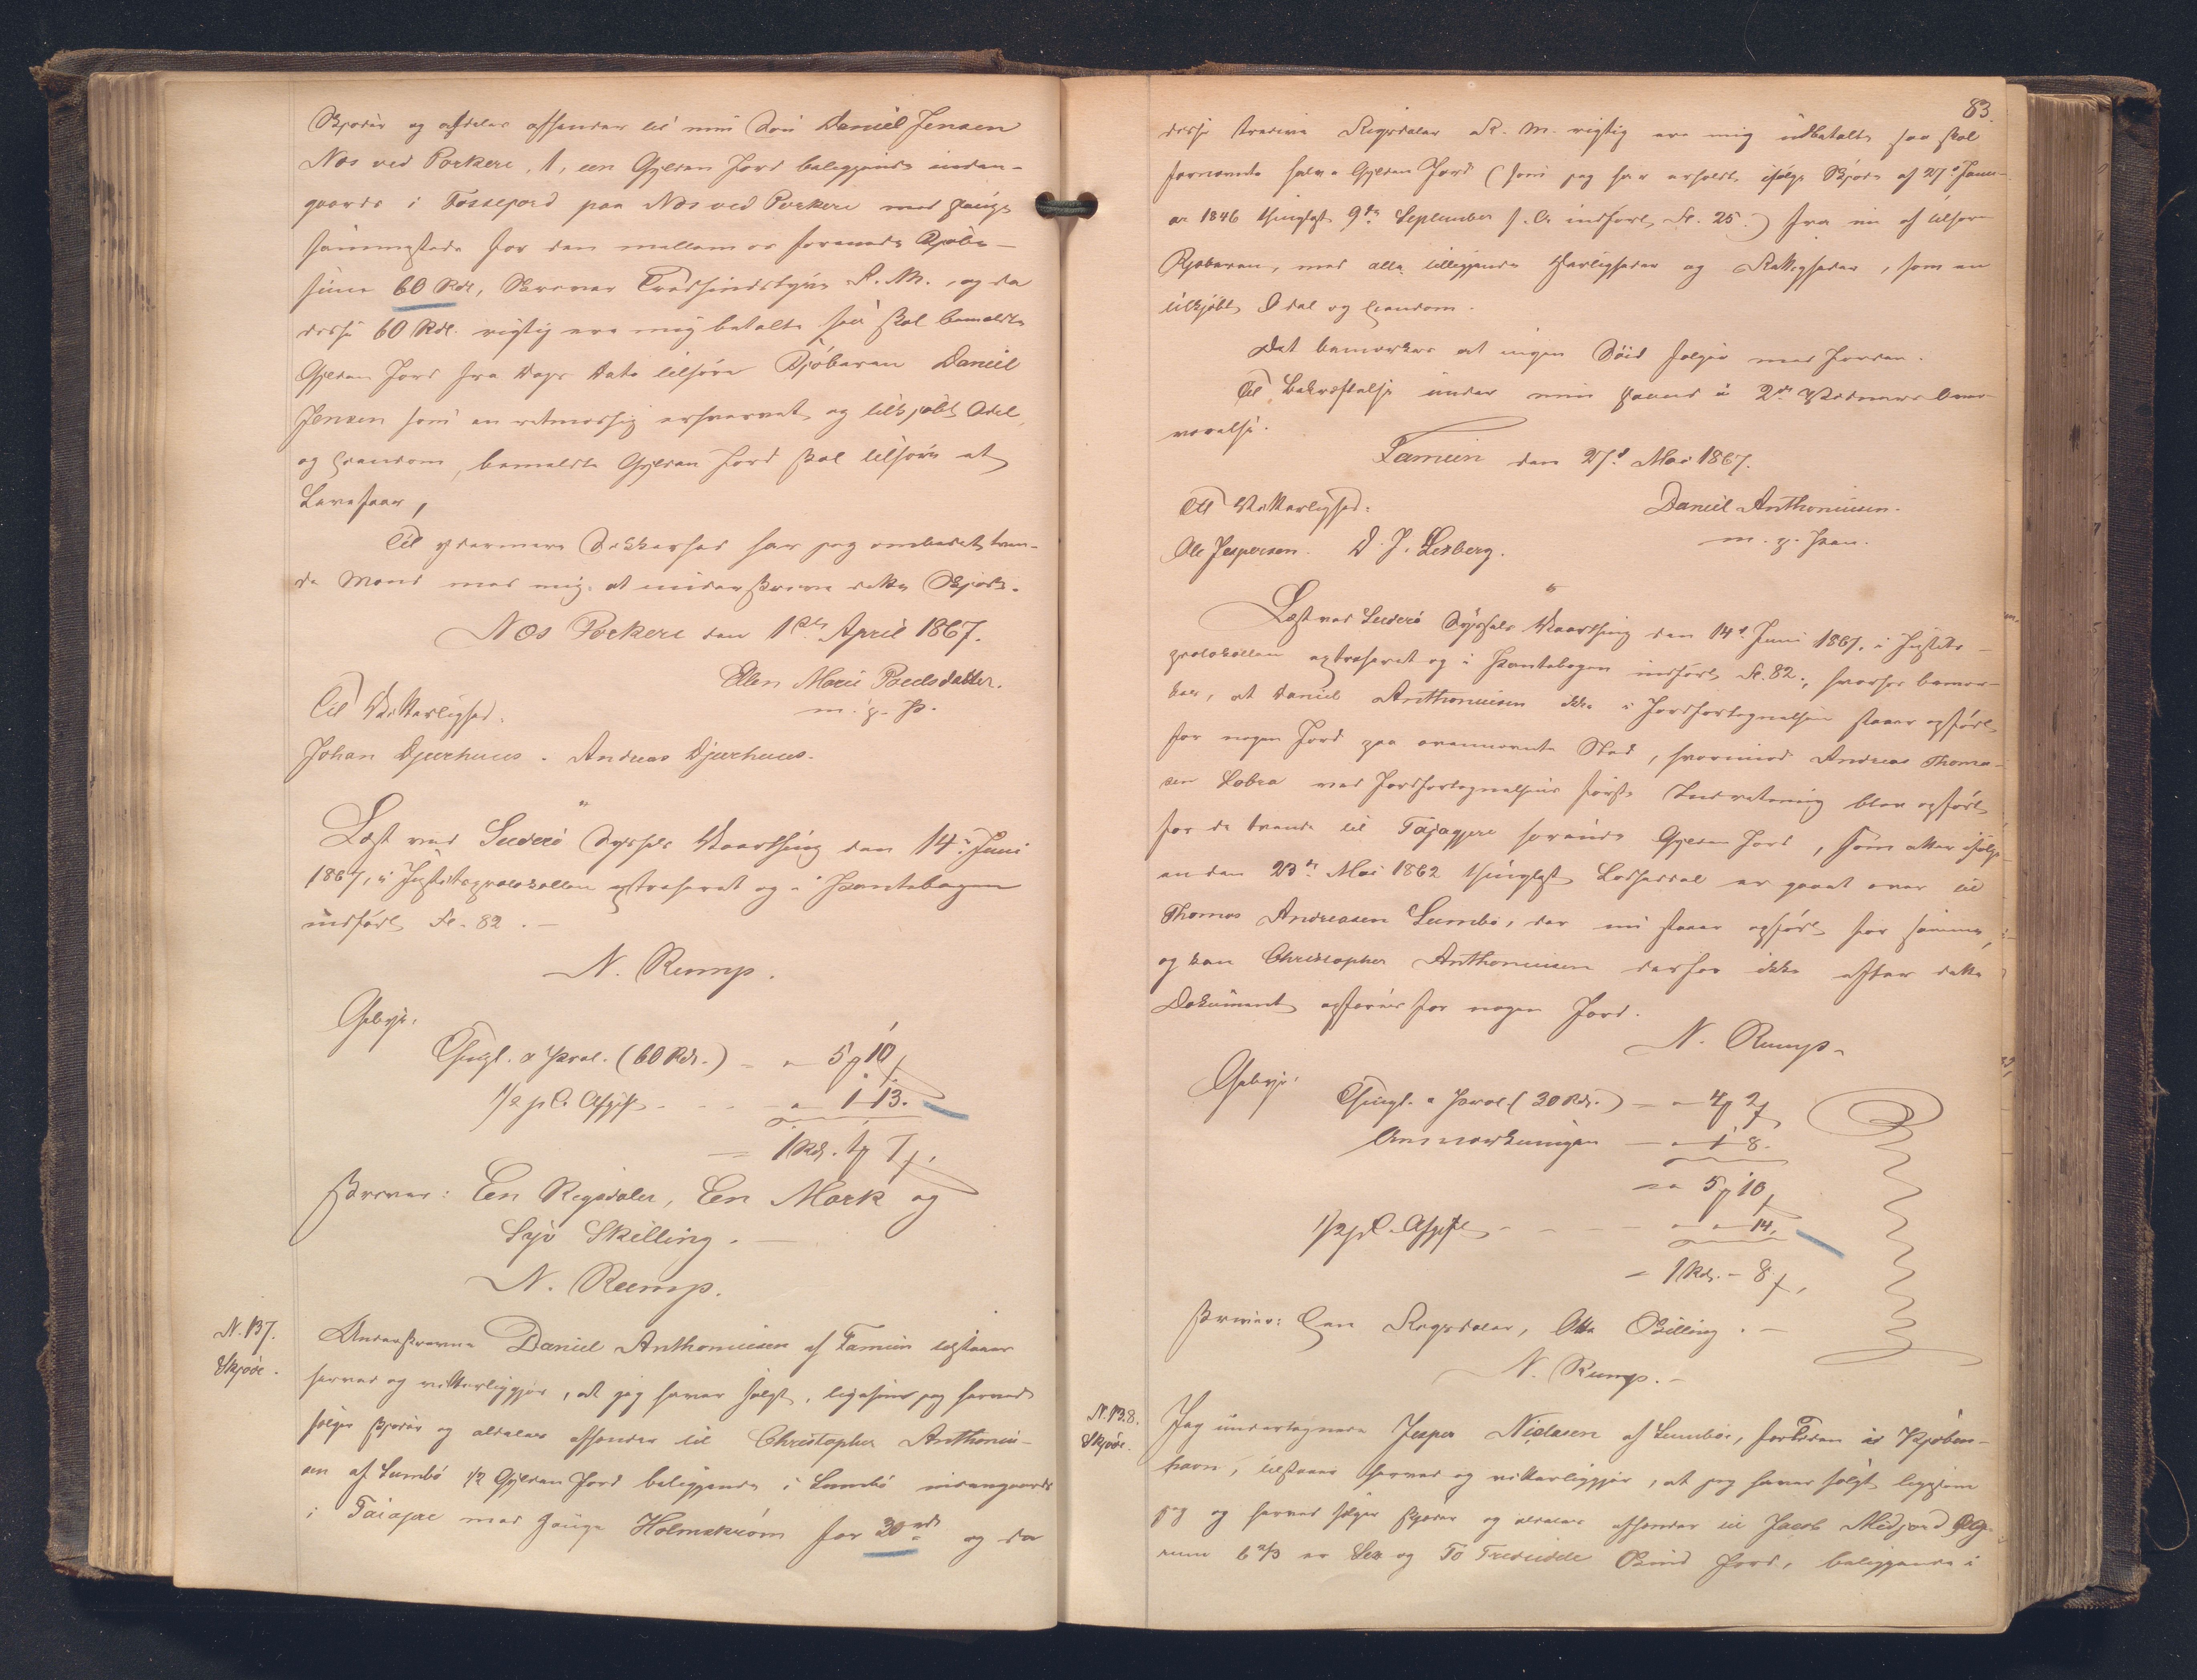 Skjøder og afdeler affhender til min Søn Daniel Jensen
Næs ved Porkere, 1, een Gylden Jord beliggende inden-
gaards i Fossejord paa Næs ved Porkere med Hauge
sammesteds for den mellem os forenede Kjøbe-
sum 60 Rdl, skrever Tredsindstyve R. M., og da
disse 60 Rdl. rigtig ere mig betalte saa skal bemeldte
Gylden Jord fra Dags Dato tilhøre Kjøberen Daniel
Jensen som en retmæssig erhvervet og tilkjøbt Odel
og Eiendom, bemeldte Gylden Jord skal tilhøre at
Til ydermere Sikkerhed har jeg ombedet tven-
de Mænd med mig at underskrive dette Skjøde.
Næs Porkere den 1ste April 1867.
Ellen Marie Poulsdatter.
m. p. P.
Til Vitterlighed.
Johan Djurhuus. Andreas Djurhuus.
"
Læst ved Suderø Syssels Vaarthing den 14. Juni
1867, i Justitsprotokollen extraheret og i Pantebogen
indført Fl. 82. —
N. Rump.
Gebyr.
Thingl. a Prot. (60 Rd.) - " 5 10
1/2 pC. Afgift - - - " 1 13.
= 1 Rd. 1 7.
skrever: Een Rigsdaler, Een Mark og
Syv Skilling. —
N. Rump.
N. 137.
Skjøde.
Underskrevne Daniel Anthoniusen af Famien tilstaaer
herved og vitterliggjør, at jeg haver solgt, ligesom jeg herved
sælger skjøder og afdeler affhender til Christopher Anthoniu-
sen af Sumbø 1/2 Gylden Jord beliggende i Sumbø indengaards
i Taiagjære med Hauge Holmskrøm for 30 rd og da
83.
disse tredive Rigsdaler R. M. rigtig ere mig udbetalte saa skal
fornævnte halve Gylden Jord (som jeg har erholdt ifølge Skjøde af 27d Janu-
ar 1846 thinglæst 9de September s. A. indført, Fl. 25.) fra nu af tilhøre
Kjøberen, med alle tilliggende Herligheder og Rettigheder, som en
tilkjøbt Odel og Eiendom.
Det bemærkes at ingen Søid følger med Jorden.
Til Bekræftelse under min Haand i 2de Vidners Over-
værelse.
Famien den 27d Mai 1867.
Til Vitterlighed.
Daniel Anthoniusen.
Ole Jespersen. D. J. Lisberg.
m. p. Pen.
"
Læst ved Suderø Syssels Vaarthing den 14d Juni 1867, i Justits-
protokollen extraheret og i Pantebogen indført Fl. 82., hvorhos bemær-
kes, at Daniel Anthoniusen ikke i Jordfortegnelsen staaer opført
for nogen Jord paa ovennævnte Sted, hvorimod Andreas Thoma-
sen Lobra ved Jordfortegnelsens første Indretning blev opført
for de tvende til Tajagjære hørende Gylden Jord, som atter ifølge
en den 23de Mai 1862 thinglæst Lodseddel er gaaet over til
Thomas Andreasen Sumbø, der nu staaer opført for samme,
og kan Christopher Anthoniusen derfor ikke efter dette
Dokument opføres for nogen Jord.
N. Rump.
Gebyr.
Thingl. a Prot. (30 Rd.) - " 4 2
Anmærkningen - " 1 8.
= " 5 10
1/2 pC. Afgift - - - " " 14.
= 1 Rd. - 8.
skriver: Een Rigsdaler, Otte Skilling. —
N. Rump. —
N. 138.
Skjøde.
Jeg undertegnede Jesper Nielsen af Sumbø, for Tiden i Kjøben-
havn, tilstaaer herved og vitterliggjør, at jeg haver solgt ligesom
jeg og herved sælger skjøder og afdeler affhender til Jacob Midjord Øg-
rum 6 2/3 er Sex og To Trediedele Skind Jord, beliggende i